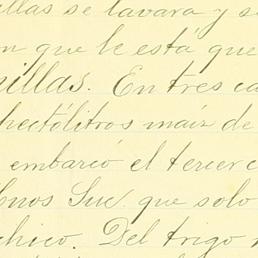 illas se lavara y s
n que le está que
illas. En tres ca
hectólitros maíz de
embarcó el tercer c
nos Suc. que solo
chico. Del trigo